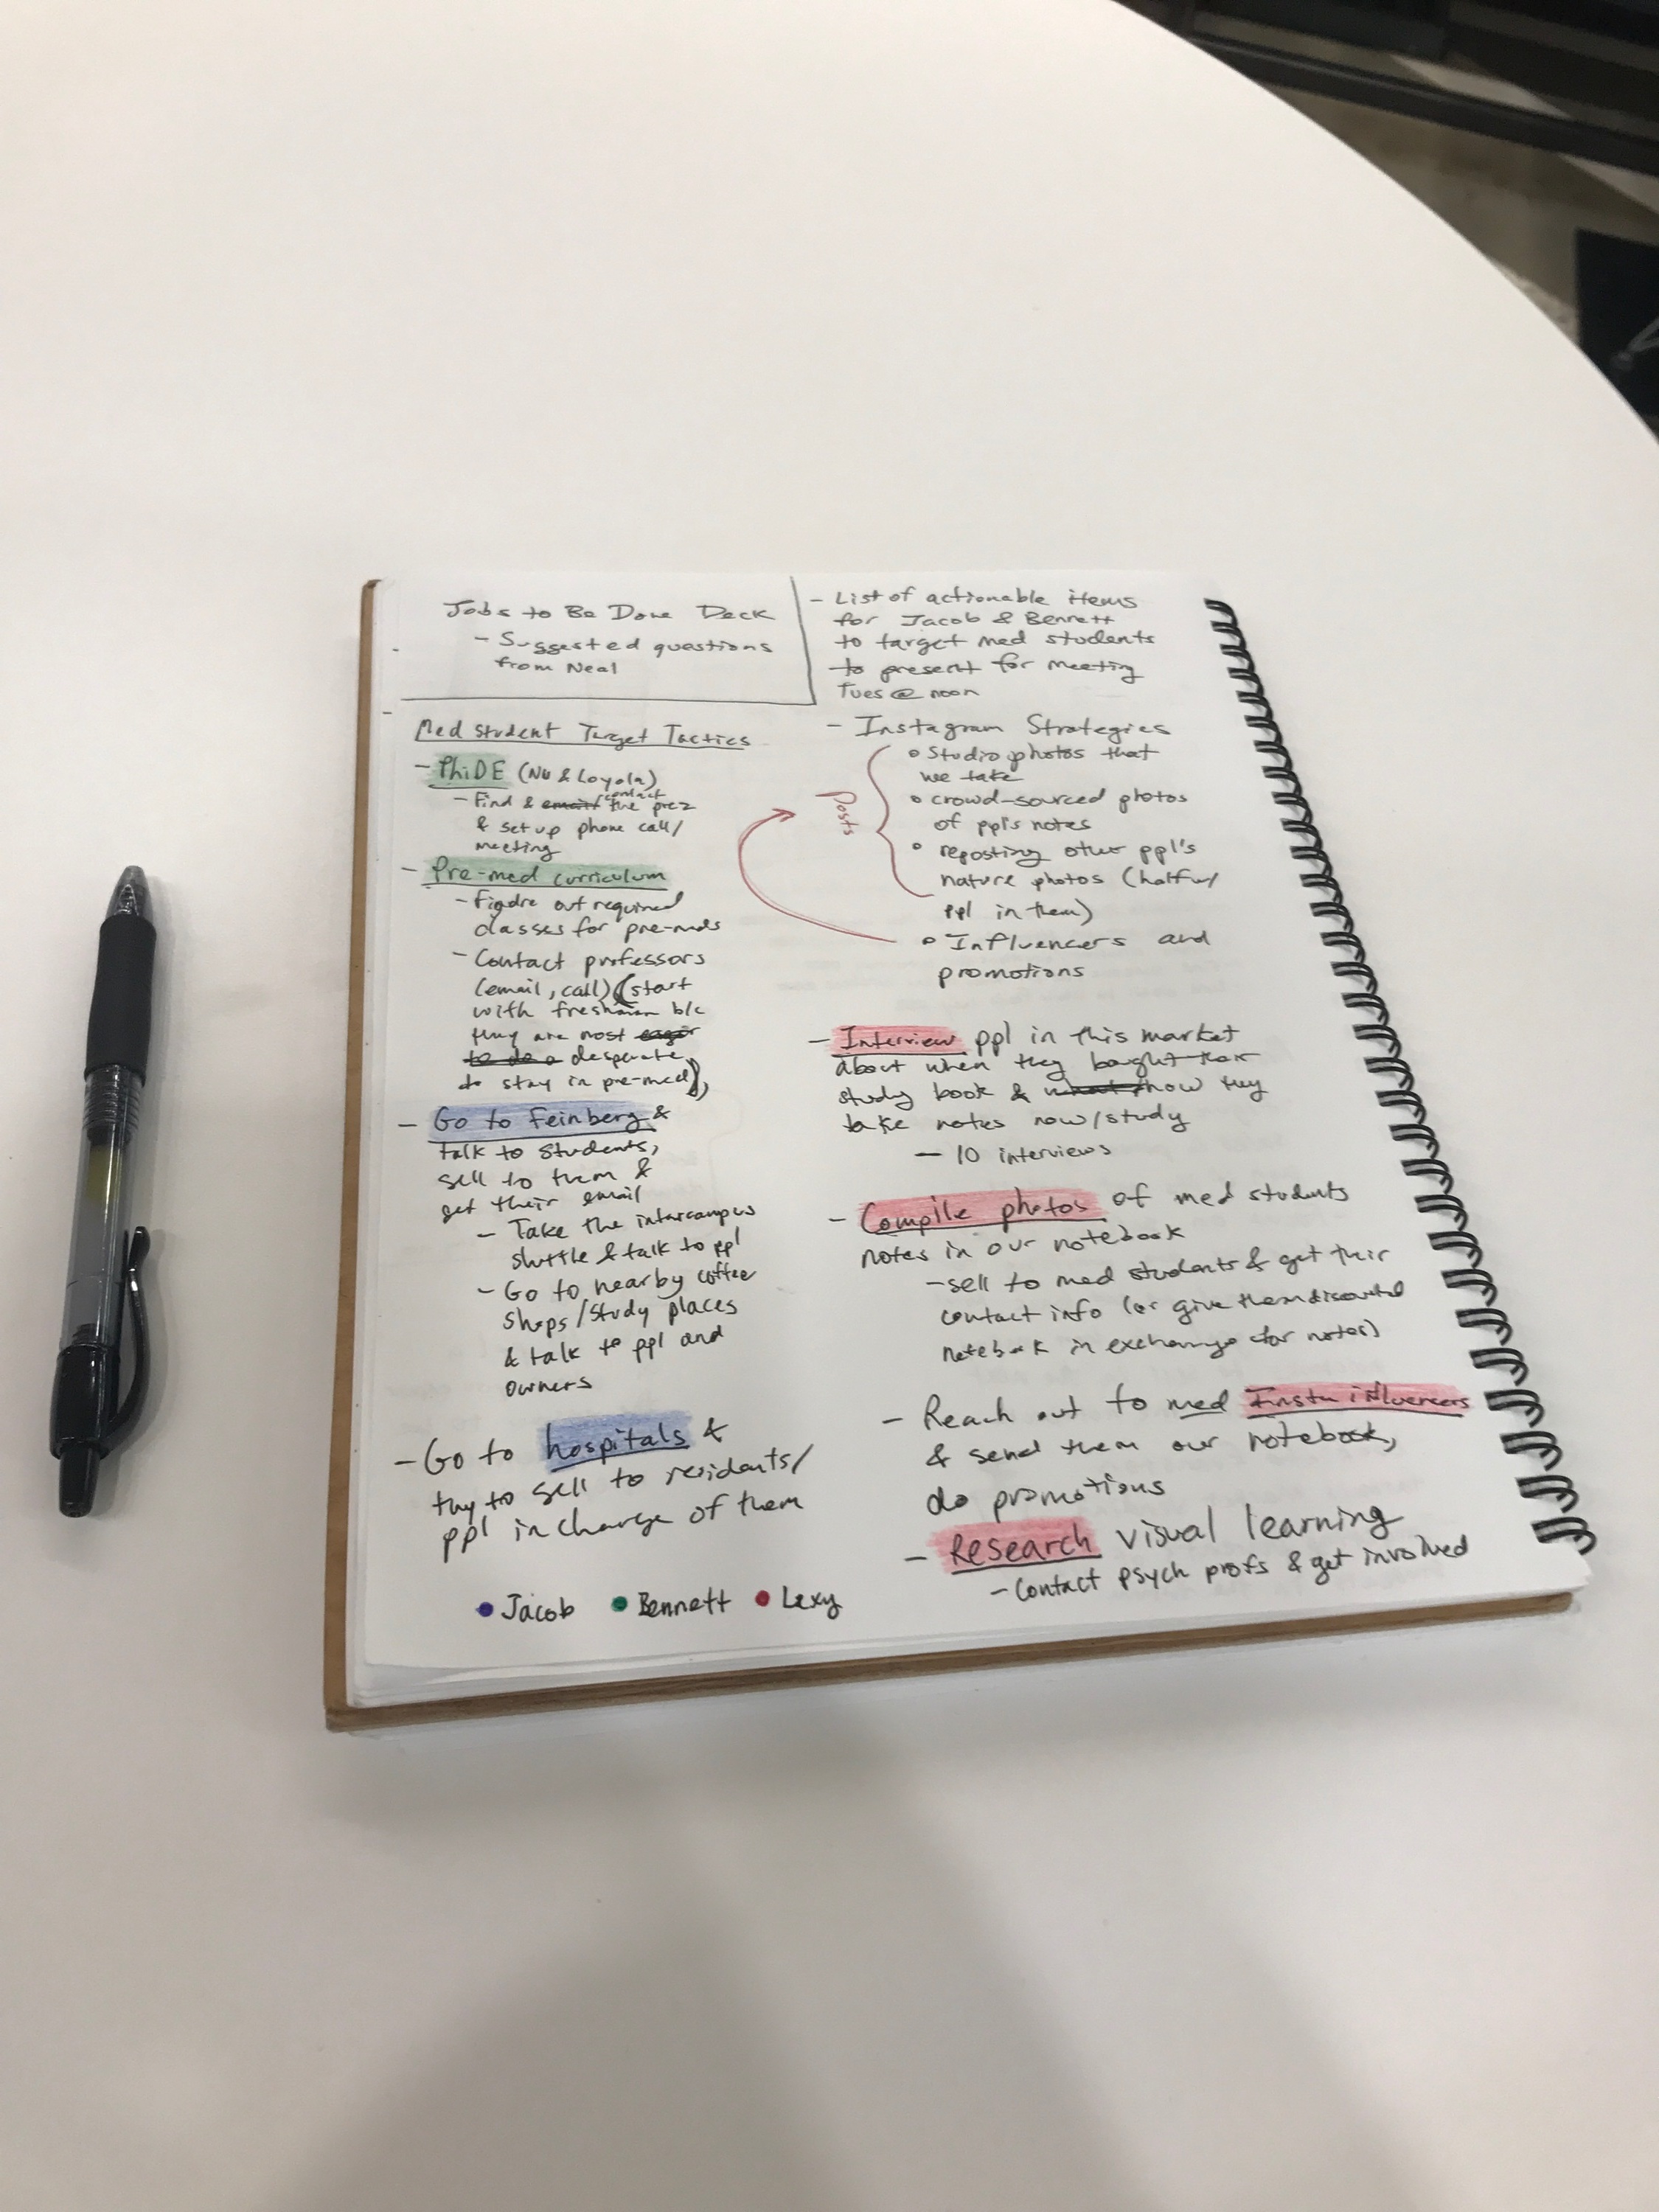 Jobs to Be Done Deck
- Suggested questions
from Neal
Med Student Target Tactics
- PhiDE (NU & Loyola)
- Find & email contact the prez
& set up phone call/
meeting
- Pre-med curriculum
- Figure out required
classes for pre-meds
- Contact professors
(email, call) (start
with freshman b/c
they are most eager
to do a desperate
to stay in pre-med),
- Go to Feinberg &
talk to students,
sell to them &
get their email
- Take the intercampus
shuttle & talk to ppl
- Go to nearby coffee
shops/study places
& talk to ppl and
owners
- Go to hospitals &
try to sell to residents/
ppl in charge of them
• Jacob • Bennett • Lexy
- List of actionable items
for Jacob & Bennett
to target med students
to present for meeting
Tues @ noon
- Instagram Strategies
Posts
• Studio photos that
we take
• crowd-sourced photos
of ppl's notes
• reposting other ppl's
nature photos (half w/
ppl in them)
• Influencers and
promotions
- Interview ppl in this market
about when they bought their
study book & what how they
take notes now/study
- 10 interviews
- Compile photos of med students
notes in our notebook
- sell to med students & get their
contact info (or give them discounted
notebook in exchange for notes)
- Reach out to med Insta influencers
& send them our notebook,
do promotions
- Research visual learning
- Contact psych profs & get involved